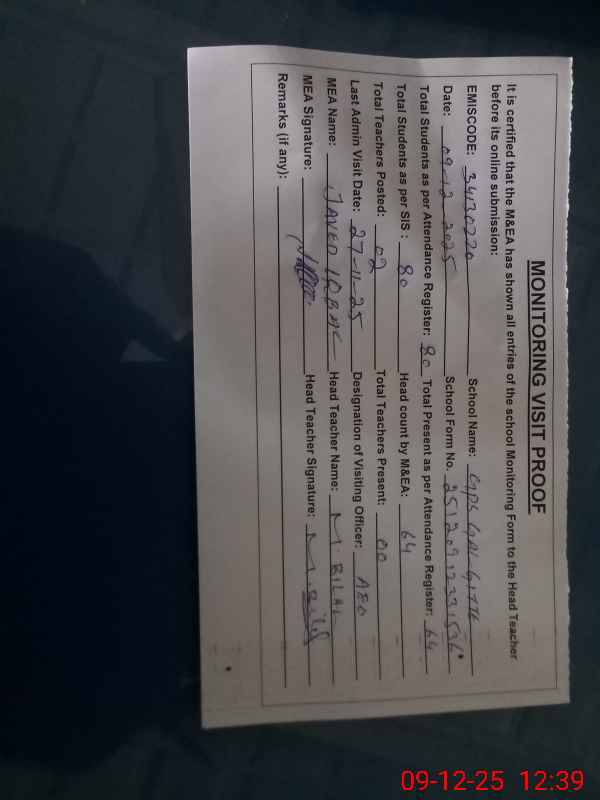 MONITORING VISIT PROOF
It is certified that the M&EA has shown all entries of the school Monitoring Form to the Head Teacher
before its online submission:
EMISCODE: 34130220 School Name: GPS
Date: 09-12-2025 School Form No. 25120912331536
Total Students as per Attendance Register: 80 Total Present as per Attendance Register: 64
Total Students as per SIS : 80 Head count by M&EA: 64
Total Teachers Posted: 02 Total Teachers Present: 00
Last Admin Visit Date: 27-11-25 Designation of Visiting Officer: AEO
MEA Name: JAVED IQBAL Head Teacher Name: M. BILAL
MEA Signature: Head Teacher Signature: M. Bilal
Remarks (if any):
09-12-25 12:39